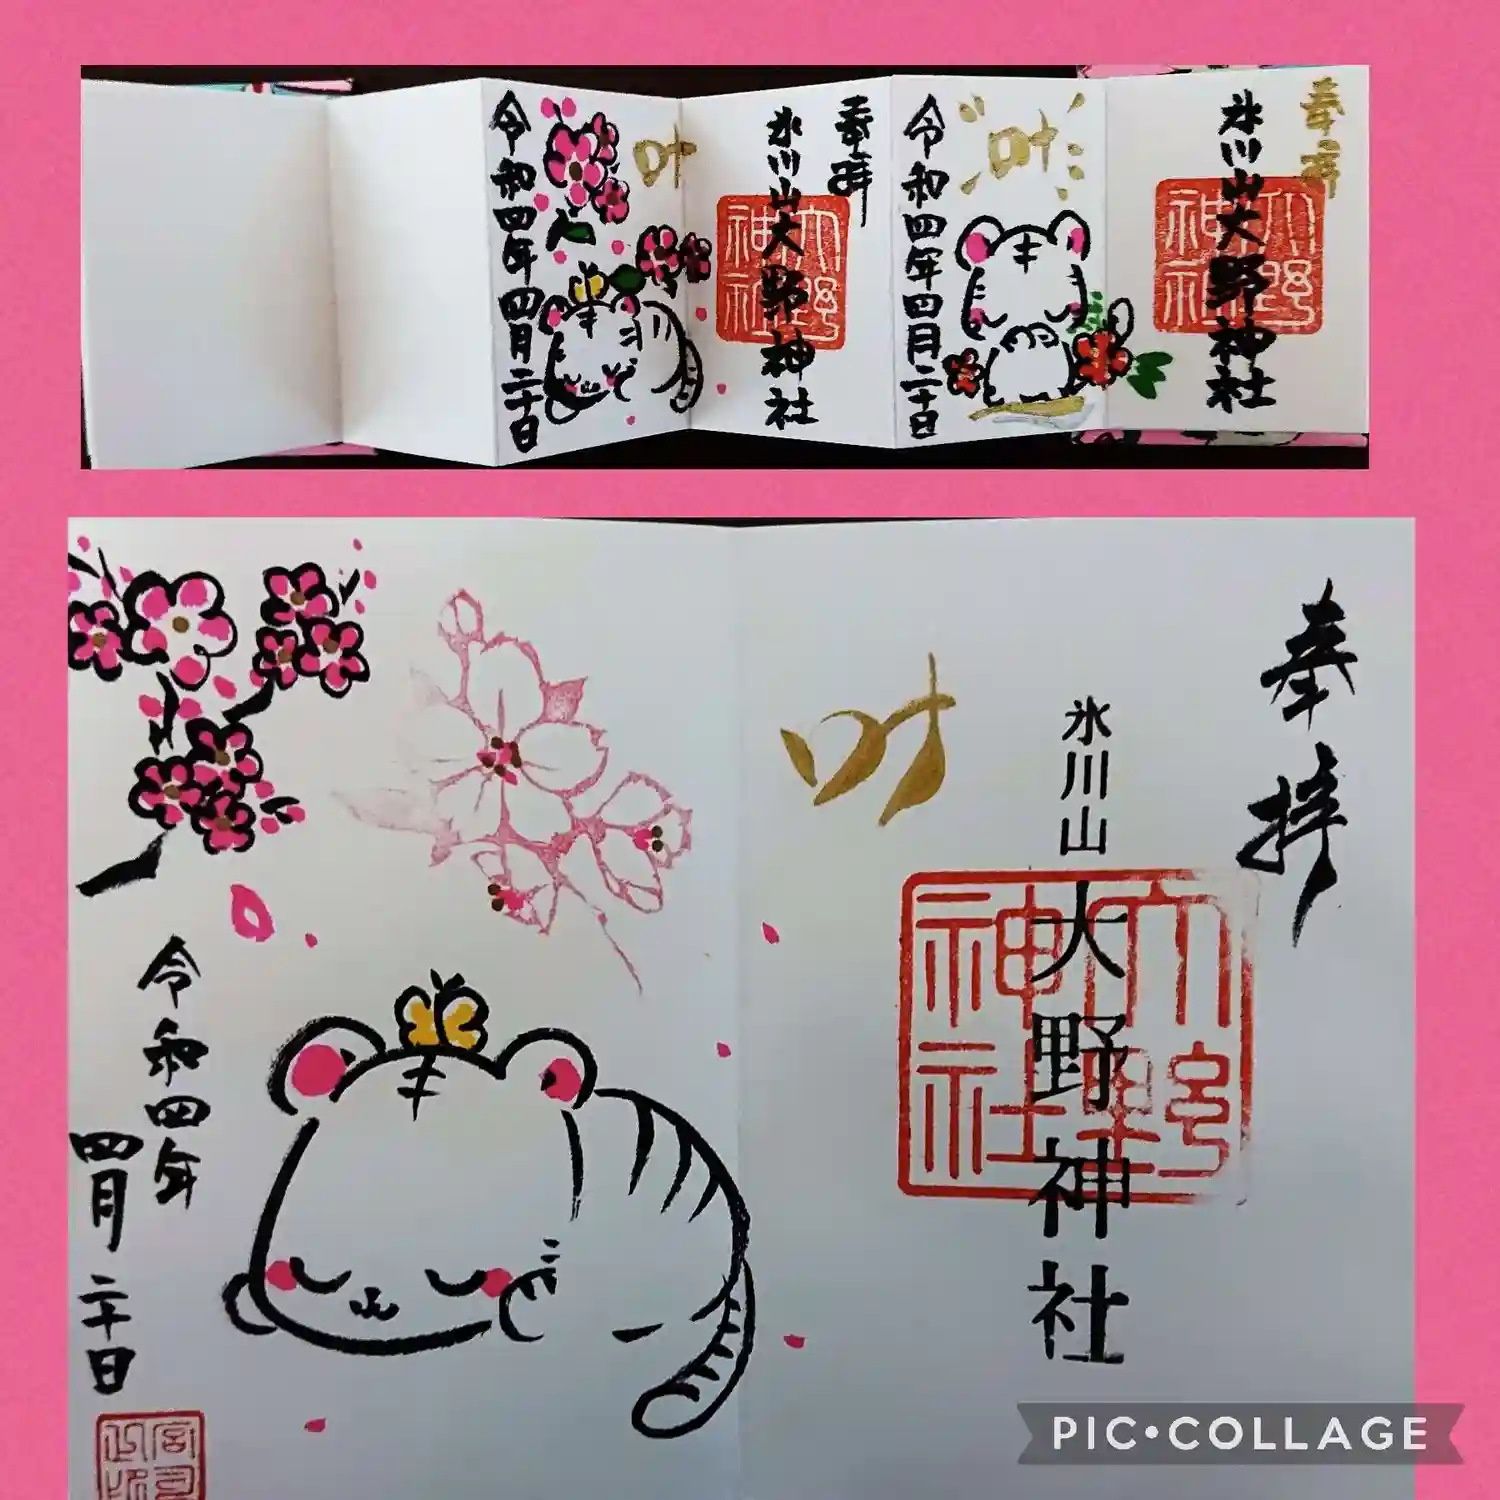 奉拝
氷川山大野神社
叶
令和四年四月二十日
奉拝
氷川山大野神社
叶
令和四年四月二十日
奉拝
氷川山
大野神社
大野
神社
叶
令和四年
四月二十日
PIC•COLLAGE